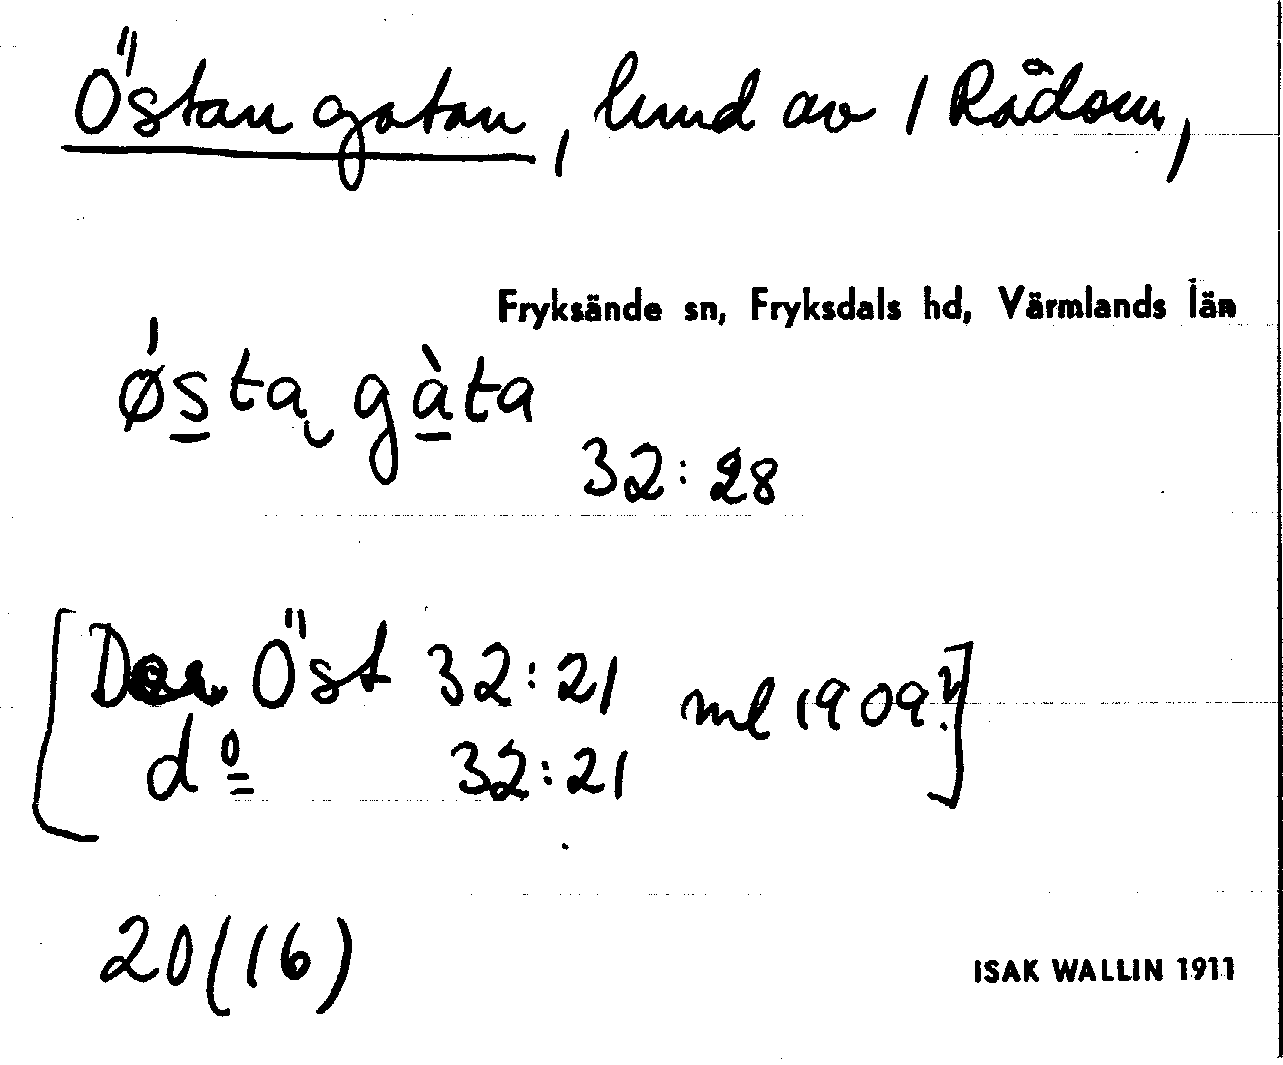 Östan gatan, lund av 1 Rådom,
Fryksände sn, Fryksdals hd, Värmlands län
ǿs̲ta̜ gà̲ta
32:28
[Der Öst 32:21 ml 1909?]
dº 32:21
20(16)
ISAK WALLIN 1911